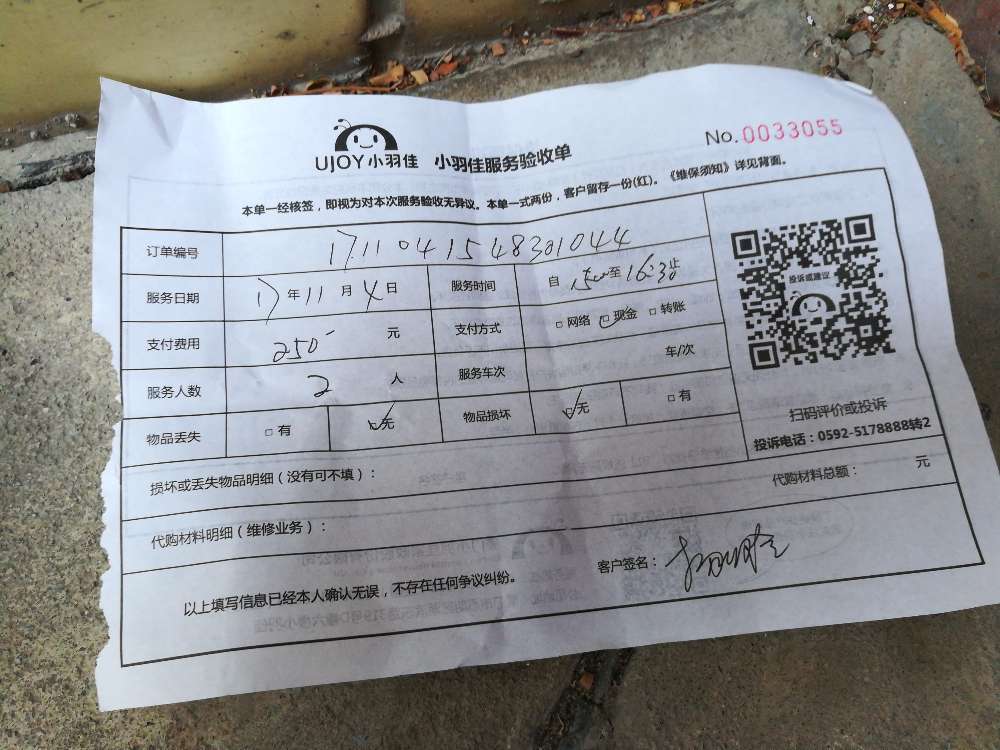 UJOY小羽佳 小羽佳服务验收单
No.0033055
本单一经核签，即视为对本次服务验收无异议。本单一式两份，客户留存一份(红)。《维保须知》详见背面。
订单编号 1711041548301044
服务日期 17年11月4日 服务时间 自1500至16:30止
支付费用 250 元 支付方式 □网络 □现金 □转账
服务人数 2 人 服务车次 车/次
物品丢失 □有 □无 物品损坏 □无 □有
投诉或建议
扫码评价或投诉
投诉电话：0592-5178888转2
损坏或丢失物品明细（没有可不填）：
代购材料明细（维修业务）： 代购材料总额： 元
以上填写信息已经本人确认无误，不存在任何争议纠纷。 客户签名：